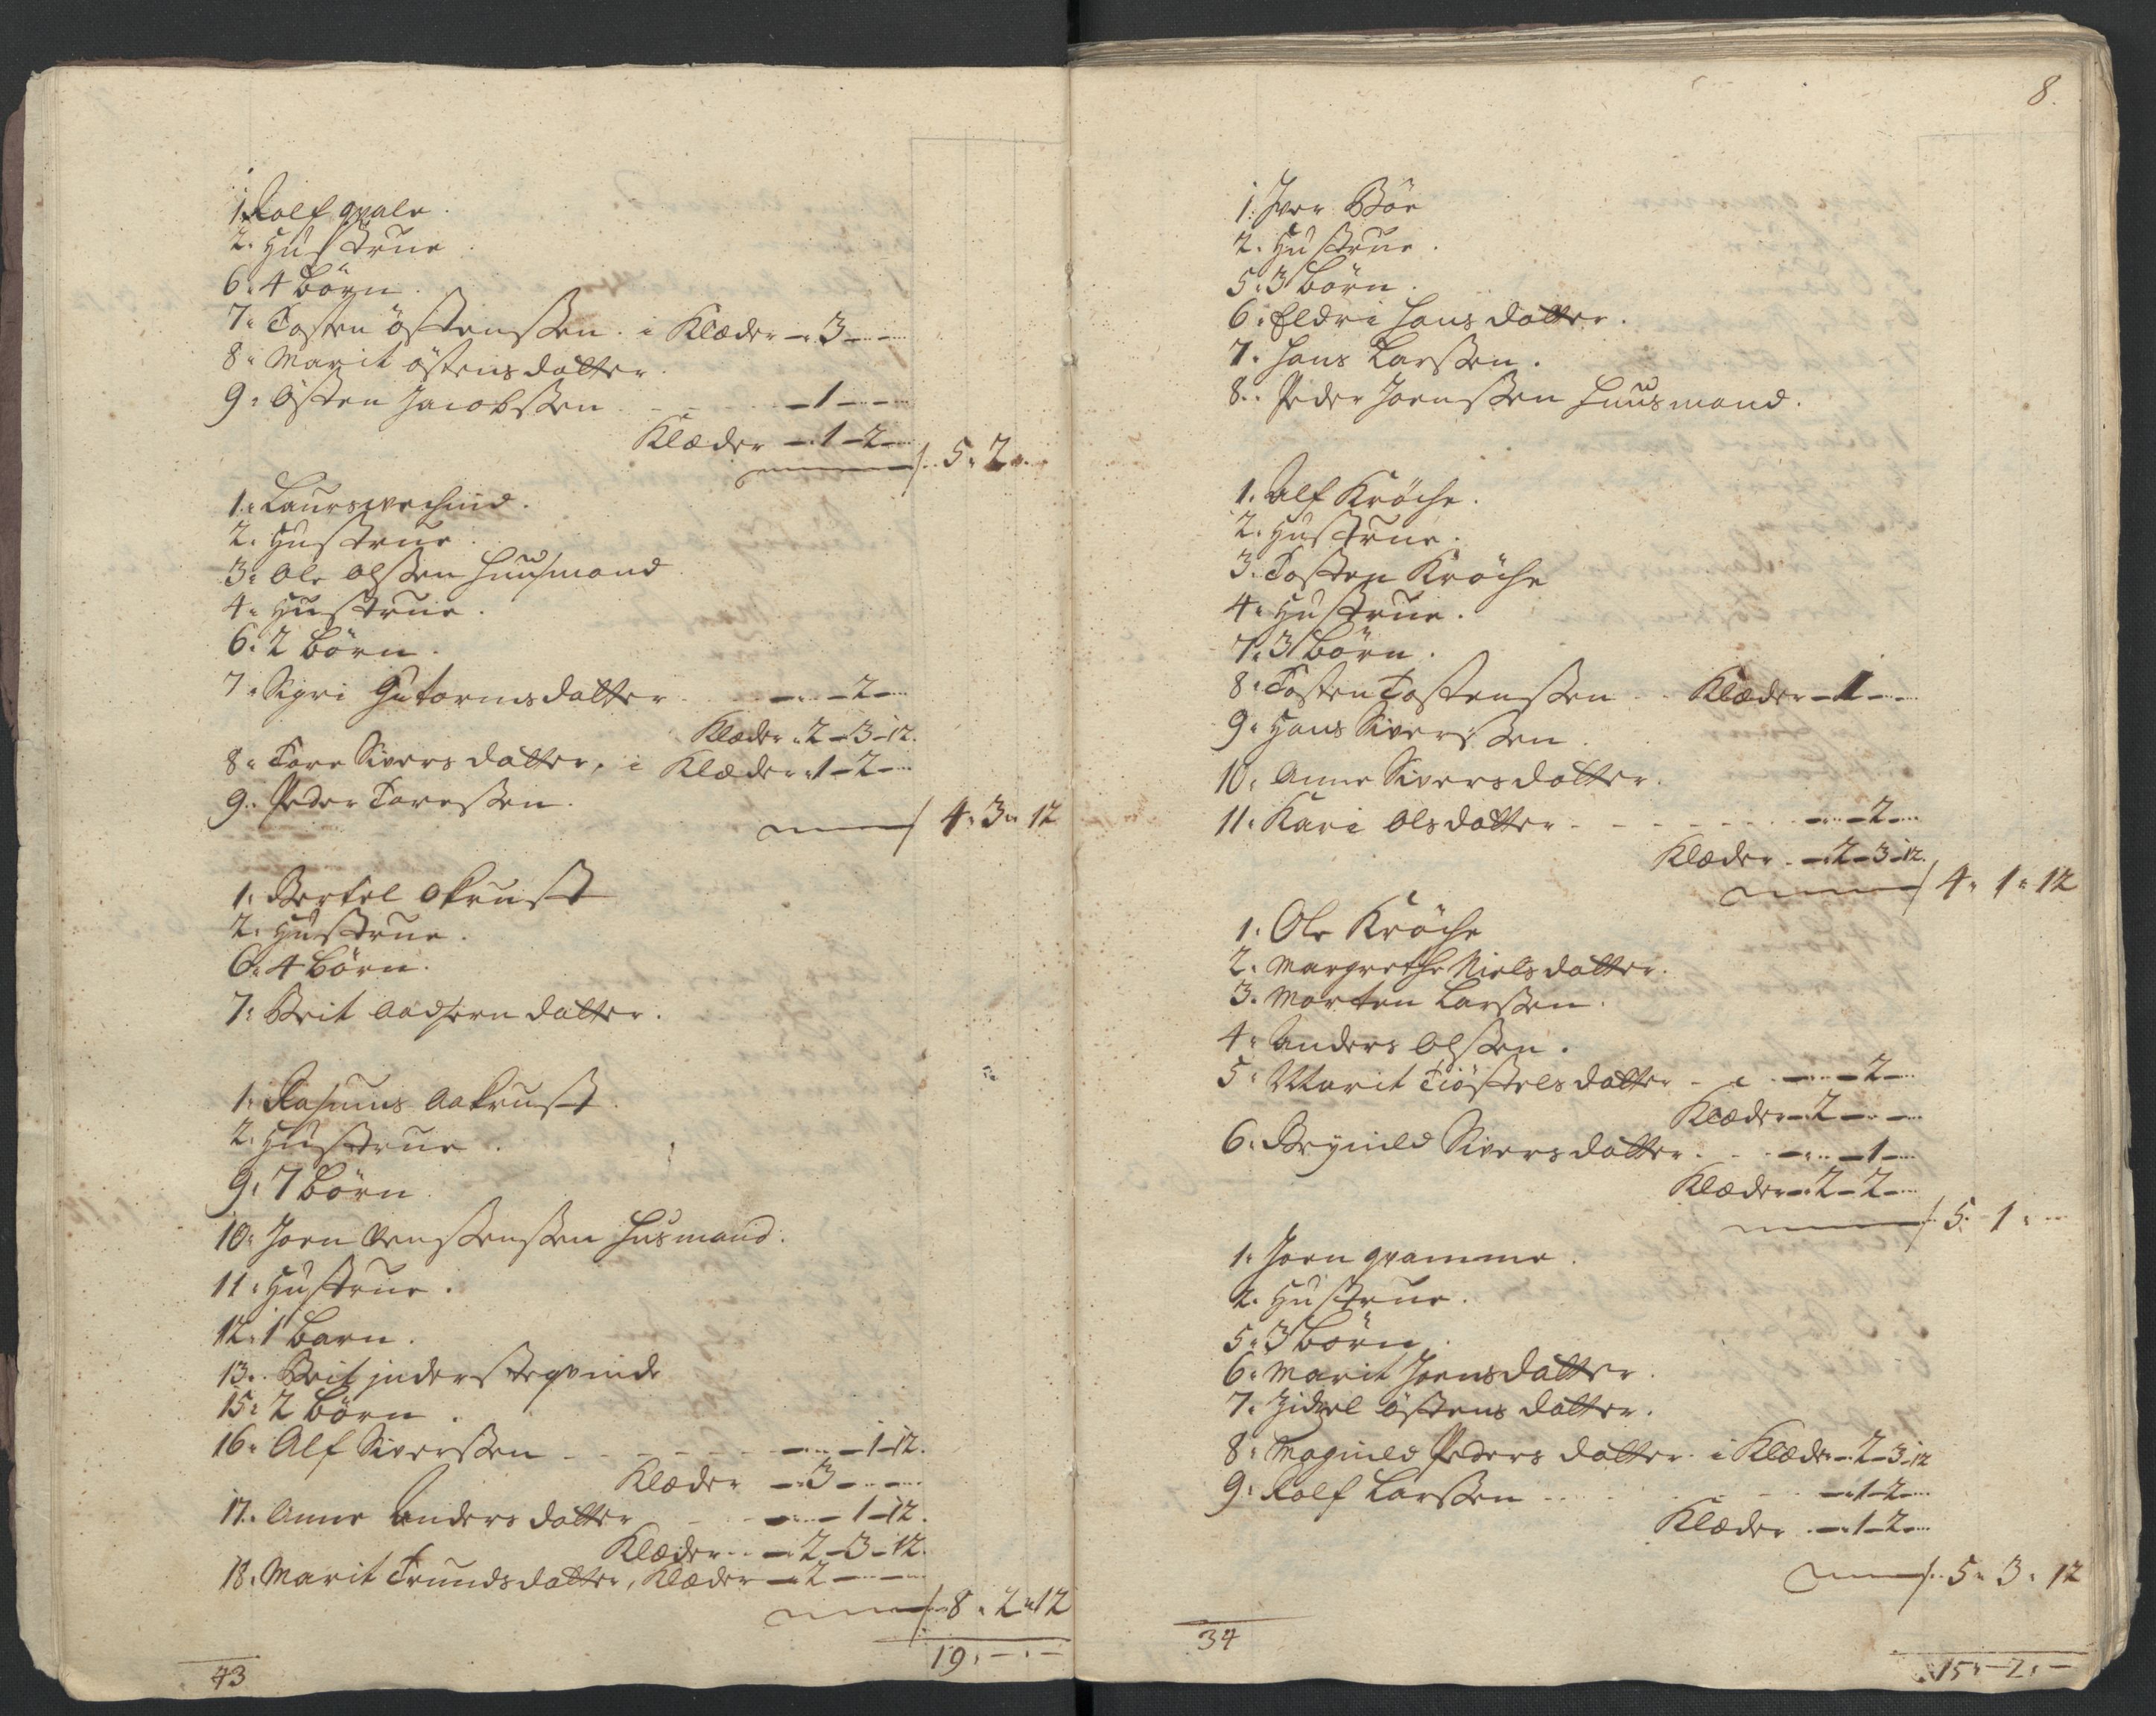 1. Rolf qvale.
2. Hustrue.
6. 4 börn.
7. Tosten östenssen. i Klæder - 3 - -
8. Marit östensdatter.
9. östen Jacobssen - 1 - -
Klæder - 1 - 2 -
5. 2.
1.
2. Hustrue.
3. Ole olssen Huusmand
4. Hustrue.
6. 2 börn.
7. Sigri Gutormsdatter - - 2 -
Klæder. 2 - 3 - 12.
8. Tore Siversdatter, i Klæder 1 - 2 -
9. Peder Toressen.
4. 3. 12
1. Bertel
2. Hustrue.
6. 4 börn.
7. Brit datter.
1. Rasmus
2. Hustrue.
9. 7 börn.
10. Joen Husmand.
11. Hustrue.
12. 1 barn.
13. Brit indersteqvinde
15. 2 börn.
16. Alf Siverssen - - 1 - 12.
Klæder - 3 - -
17. Anne Andersdatter - - 1 - 12.
Klæder - 2 - 3 - 12.
18. Marit Trundsdatter, Klæder - 2 - -
8. 2. 12
19. - . -
43
8.
1. Iver Böe
2. Hustrue.
5. 3 börn.
6. Eldri Hansdatter.
7. Hans Larssen.
8. Peder Joenssen Huusmand.
1. Alf Kröche.
2. Hustrue.
3. Tosten Kröche
4. Hustrue.
7. 3 börn.
8. Tosten Tostenssen. Klæder - 1 - -
9. Hans Siverssen.
10. Anne Siversdatter.
11. Kari olsdatter - - 2 -
Klæder. - 2 - 3 - 12.
4. 1. 12
1. Ole Kröche
2. Margrethe Nielsdatter.
3. Morten Larssen.
4. Anders olssen.
5. Marit Tiöstelsdatter - - 2 -
Klæder - 2 - -
6. Brynild Siversdatter. - - 1 -
Klæder - 2 - 2 -
5. 1. -
1. Joen qvamme.
2. Hustrue.
5. 3 börn.
6. Marit Joensdatter.
7. östensdatter.
8. Magnild Pedersdatter. i Klæder - 2 - 3 - 12
9. Rolf Larssen - 1 - 2 -
Klæder. - 1 - 2 -
5. 3. 12
34
15. - 2. -